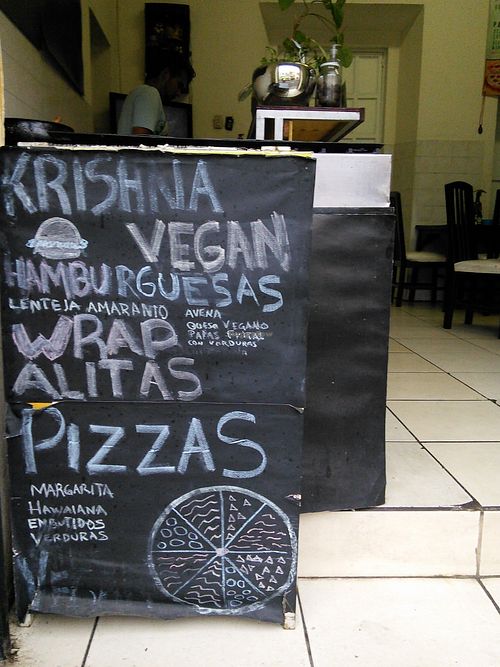 KRISHNA
VEGAN
HAMBURGUESAS
LENTEJA AMARANTO AVENA
QUESO VEGANO
PAPAS
CON VERDURAS
WRAP
ALITAS
PIZZAS
MARGARITA
HAWAIANA
EMBUTIDOS
VERDURAS